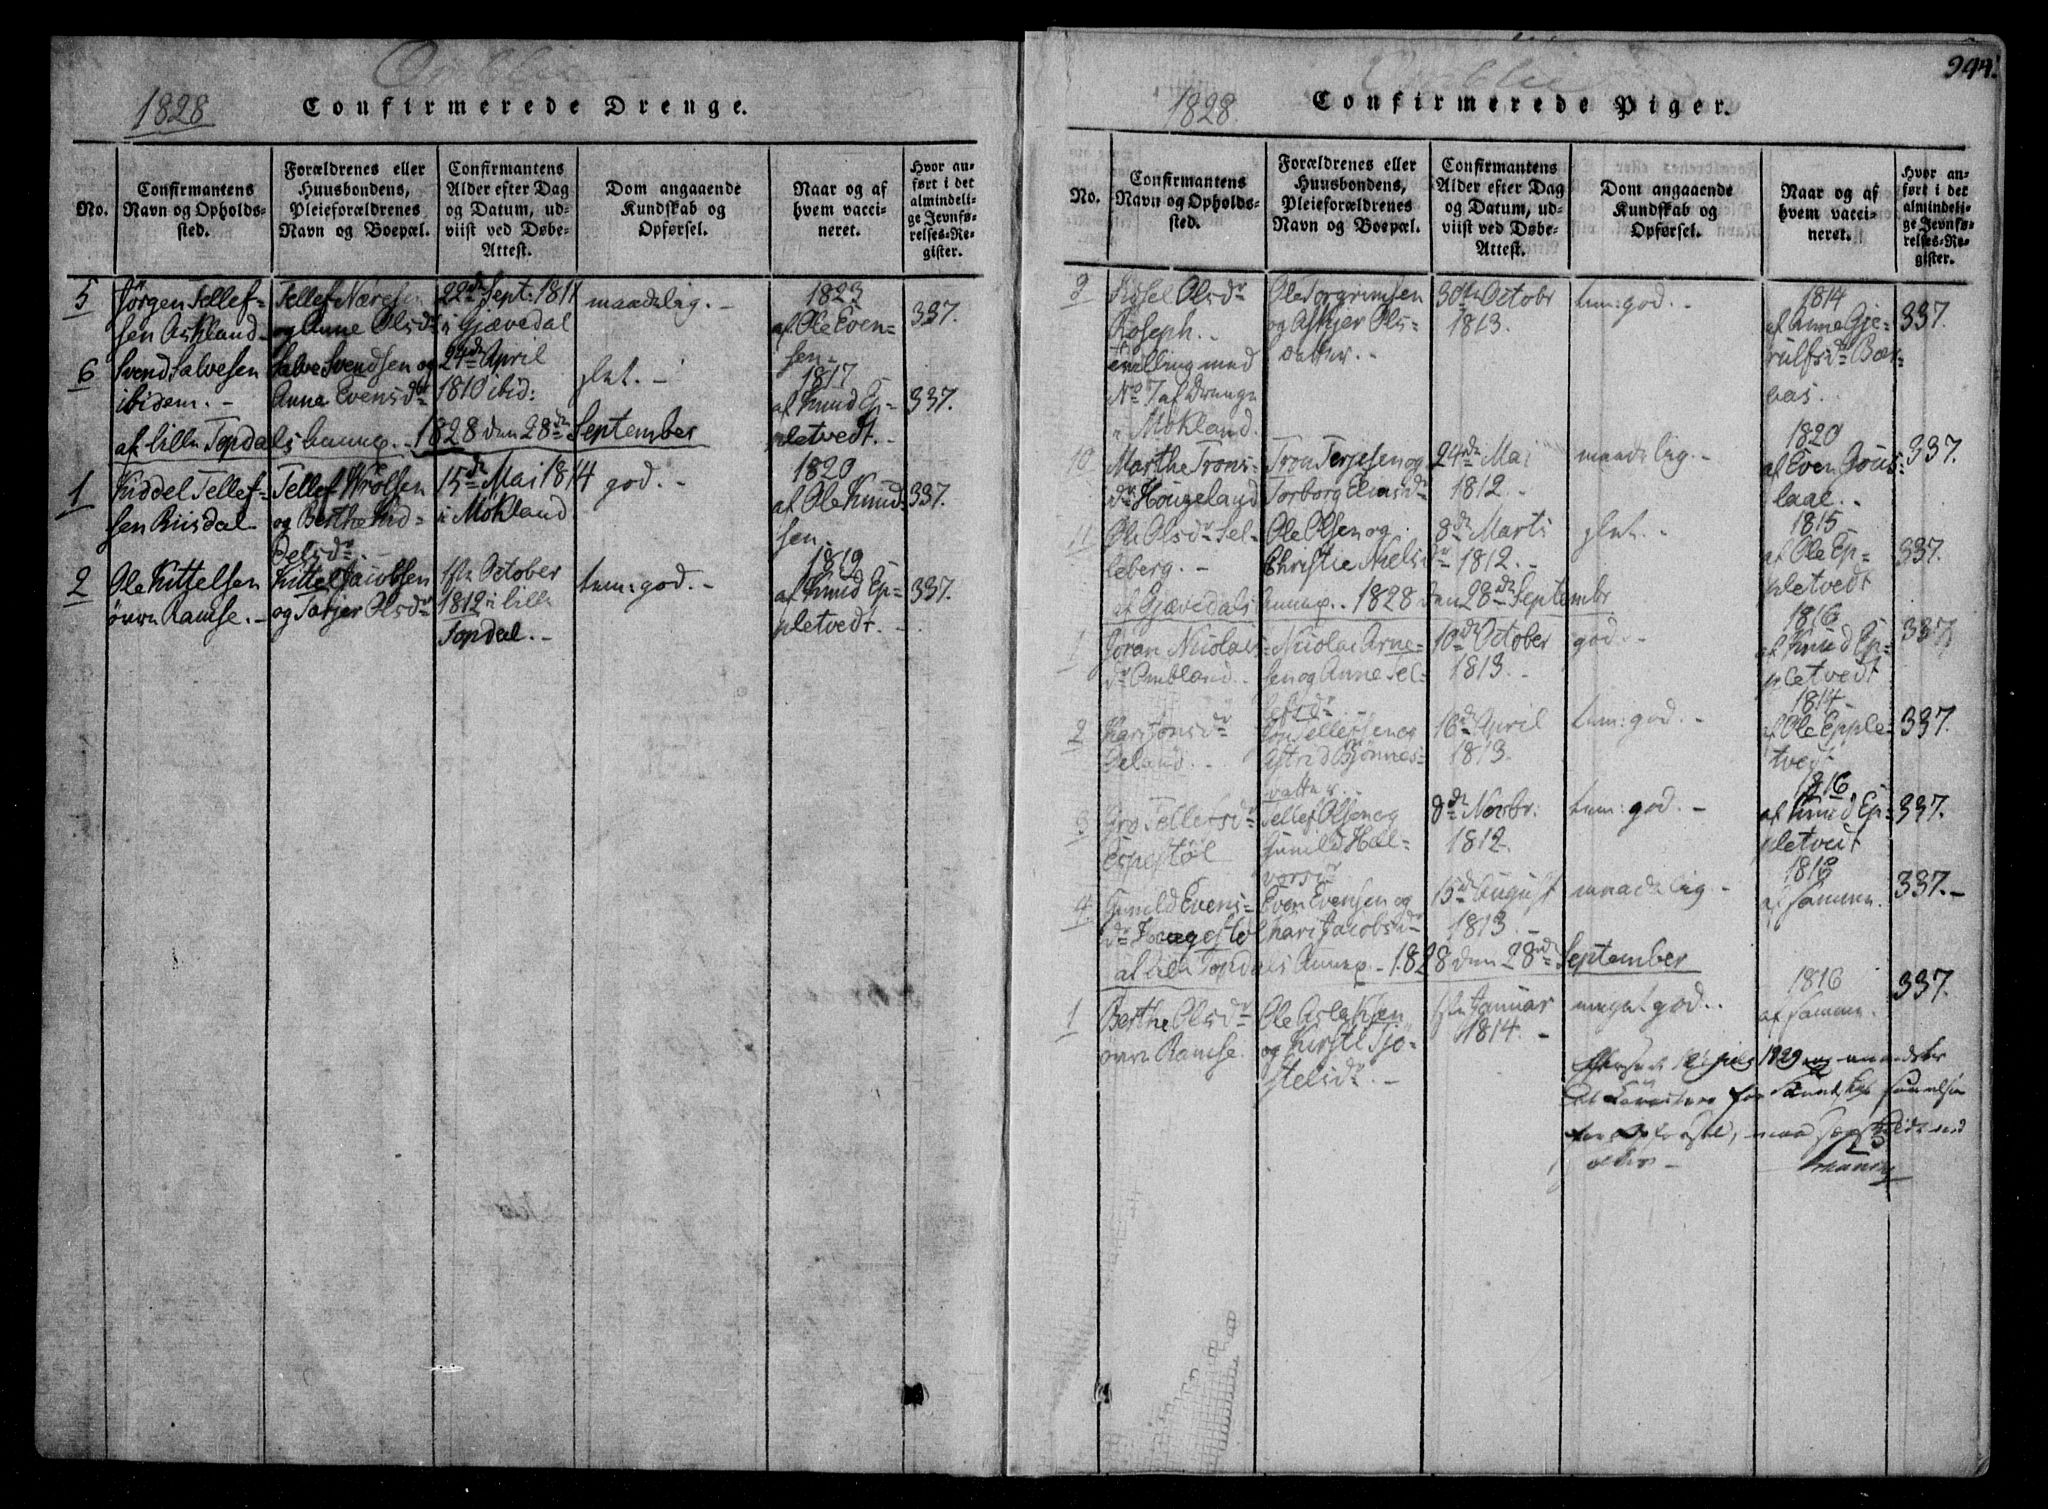 Omblie
1828 Confirmerede Drenge.
No.
Confirmantens
Navn og Opholds-
sted.
Forældrenes eller
Huusbondens,
Pleieforældrenes
Navn og Boepæl.
Confirmantens
Alder efter Dag
og Datum, ud-
viist ved Døbe-
Attest.
Dom angaaende
Kundskab og
Opførsel.
Naar og af
hvem vacci-
neret.
Hvor an-
ført i det
almindeli-
ge Jevnfø-
relses-Re-
gister.
5
Jörgen Tellef-
sen Askland
Tellef Næresen
og Anne Olsdr
22de Sept: 1811
i Gjævedal
maadelig. -
1823
af Ole Even-
sen
337.
6
Svend Salvesen
ibidem. -
Salve Svendsen og
Anne Evensdr
24de April
1810 ibid:
slet. -
1817
af Knud Ep-
pletvedt. -
337.
af Lille Topdals Annex. - 1828 den 28de September
1
Kiddel Tellef-
sen Riisdal
Tellef Wrolsen
og Berthe Kid-
delsdr. -
15de Mai 1814
i Mökland
god. -
1820
af Ole Knud-
sen.
337.
2
Ole Kittelsen
övre Ramse. -
Kittel Jacobsen
og Tarjer Olsdr
1ste October
1812 i Lille
Topdal. -
tem: god. -
1819
af Knud Ep-
pletvedt. -
337.
944.
Omblie
1828. Confirmerede Piger.
No.
Confirmantens
Navn og Opholds-
sted.
Forældrenes eller
Huusbondens,
Pleieforældrenes
Navn og Boepæl.
Confirmantens
Alder efter Dag
og Datum, ud-
viist ved Døbe-
Attest.
Dom angaaende
Kundskab og
Opførsel.
Naar og af
hvem vacci-
neret.
Hvor an-
ført i det
almindeli-
ge Jevnfø-
relses-Re-
gister.
9
Sidsel Olsdr
Roseph. -
tvilling med
No 7 af Drenge
i Mökland.
Ole Torgrimsen
og Askjer Ols-
datter. -
30te Octobr
1813.
tem: god. -
1814
af Anne Gje-
rulfsdr Bær-
aas.
337.
10
Marthe Trons-
dr Hougeland
Tron Terjesen og
Torborg Elmsdr
24de Mai
1812. -
maadelig. -
1820
af Even Gous-
laae. -
337.
11
Ole Olsdr Sel-
leberg. -
Ole Olsen og
Christie Nielsdr
8de Marti
1812. -
slet. -
1815
af Ole Ep-
pletvedt
337.
af Gjævedals Annex. 1828 den 28de Septembr
1
Jöran Nicolai-
dr Ombland. -
Nicolai Arne-
sen og Anne Tel-
lefsdr. -
10de October
1813. -
god. -
1816
af Knud Ep-
pletvedt
337.
2
Kari Jonsdr
Öeland. -
Jon Tellefsen og
Astrid Bjönnes-
datter. -
16de April
1813.
tem: god. -
1814
af Ole Epple-
tvedt
337.
3
Gro Tellefsdr
Espestöl
Tellef Olsen og
Gunild Hal-
vorsdr
8de Novbr:
1812.
tem: god. -
1816.
af Knud Ep-
pletvedt
337.
4
Gunild Evens-
dr
Even Evensen og
Kari Jacobsdr
15de August
1813. -
maadelig. -
1818
af samme.
337. -
af Lille Topdals Annex. - 1828 den 28de September
1
Berthe Olsdr
övre Ramse.
Ole Aslaksen
og Kirsti Tjö-
stelsdr. -
1ste Januar
1814. -
meget god. -
1816
af samme.
337.
1829
for